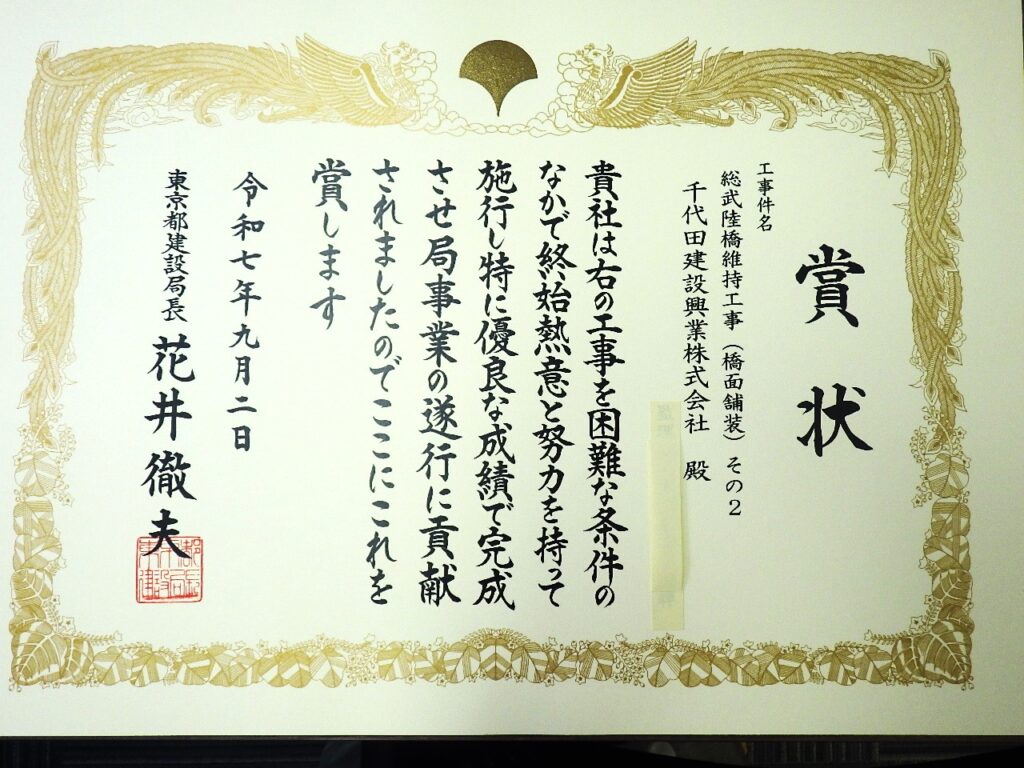 賞状
工事件名
総武陸橋維持工事（橋面舗装）その２
千代田建設興業株式会社 殿
貴社は右の工事を困難な条件の
なかで終始熱意と努力を持って
施行し特に優良な成績で完成
させ局事業の遂行に貢献
されましたのでここにこれを
賞します
令和七年九月二日
東京都建設局長 花井徹夫